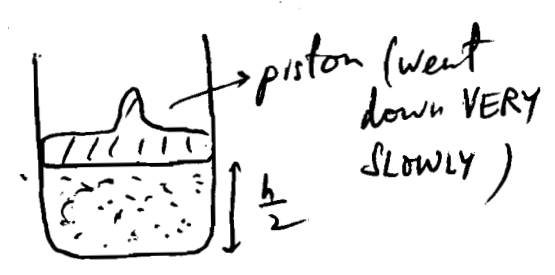 piston (went
down VERY
SLOWLY)
h/2